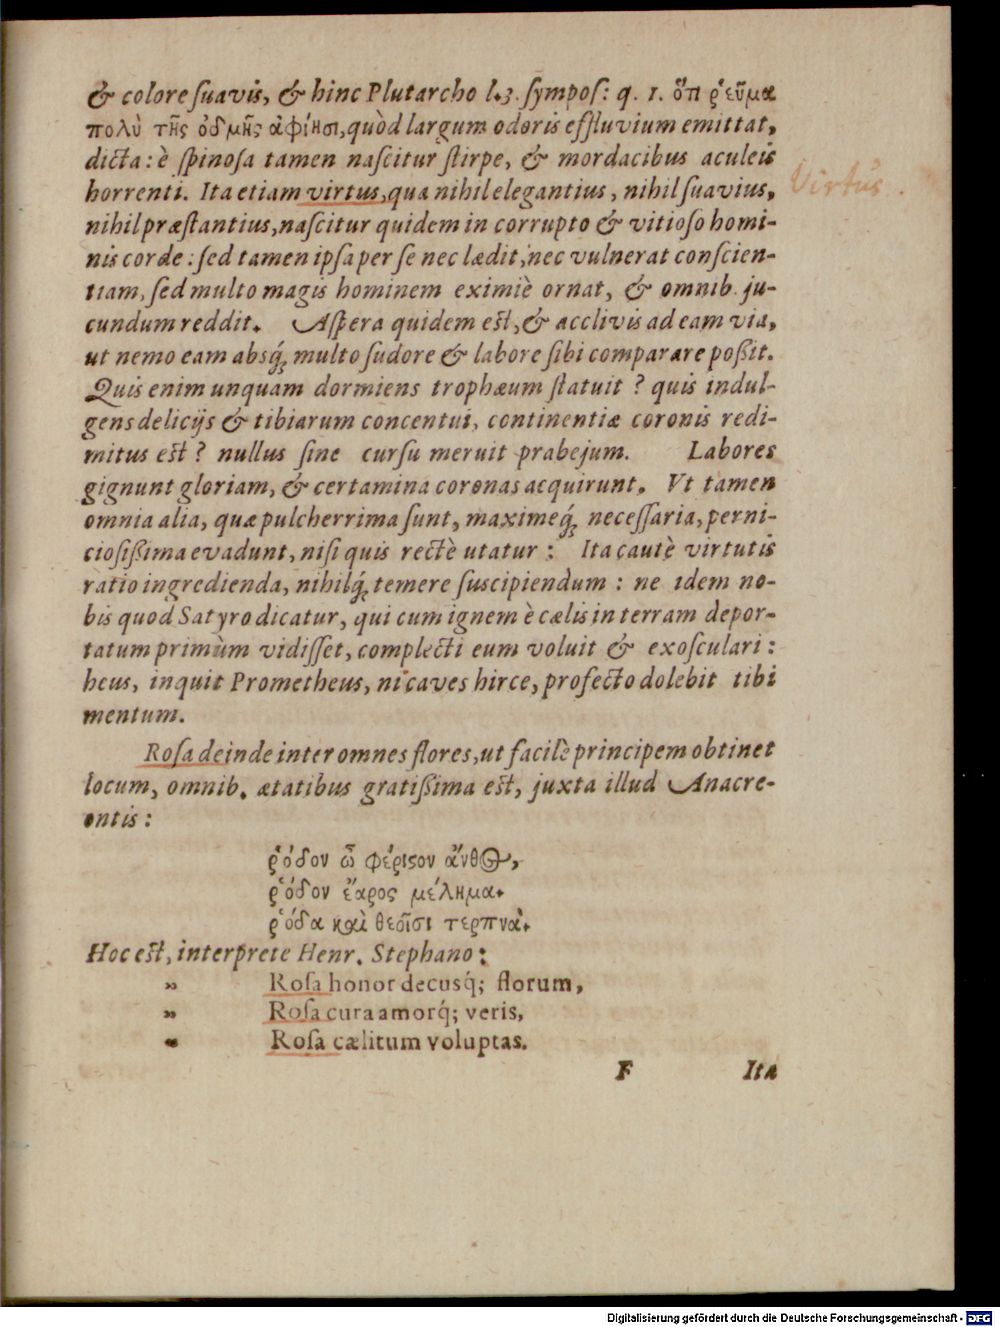 & colore suavis, & hinc Plutarcho l.3. sympos: q. 1. ὅτι ῥεῦμα
πολὺ τῆς ὀδμῆς ἀφίησι, quòd largum odoris effluvium emittat,
dicta: è spinosa tamen nascitur stirpe, & mordacibus aculeis
horrenti. Ita etiam virtus, qua nihil elegantius, nihil suavius,
Virtus.
nihil præstantius, nascitur quidem in corrupto & vitioso homi-
nis corde: sed tamen ipsa per se nec lædit, nec vulnerat conscien-
tiam, sed multo magis hominem eximiè ornat, & omnib. ju-
cundum reddit. Aspera quidem est, & acclivis ad eam via,
ut nemo eam absq́; multo sudore & labore sibi comparare poßit.
Quis enim unquam dormiens trophæum statuit? quis indul-
gens delicijs & tibiarum concentui, continentiæ coronis redi-
mitus est? nullus sine cursu meruit prabejum. Labores
gignunt gloriam, & certamina coronas acquirunt. Vt tamen
omnia alia, quæ pulcherrima sunt, maximeq́; necessaria, perni-
ciosißima evadunt, nisi quis rectè utatur: Ita cautè virtutis
ratio ingredienda, nihilq́; temere suscipiendum: ne idem no-
bis quod Satyro dicatur, qui cum ignem è cælis in terram depor-
tatum primùm vidisset, complecti eum voluit & exosculari:
heus, inquit Prometheus, ni caves hirce, profecto dolebit tibi
mentum.
Rosa deinde inter omnes flores, ut facilè principem obtinet
locum, omnib. ætatibus gratißima est, juxta illud Anacre-
ontis:
ῥόδον ὦ φέριϛον ἄνθος,
ῥόδον ἔαρος μέλημα.
ῥόδα καὶ θεοῖσι τερπνά.
Hoc est, interprete Henr. Stephano:
„ Rosa honor decusq́; florum,
„ Rosa cura amorq́; veris,
„ Rosa cælitum voluptas.
F Ita
Digitalisierung gefördert durch die Deutsche Forschungsgemeinschaft - DFG